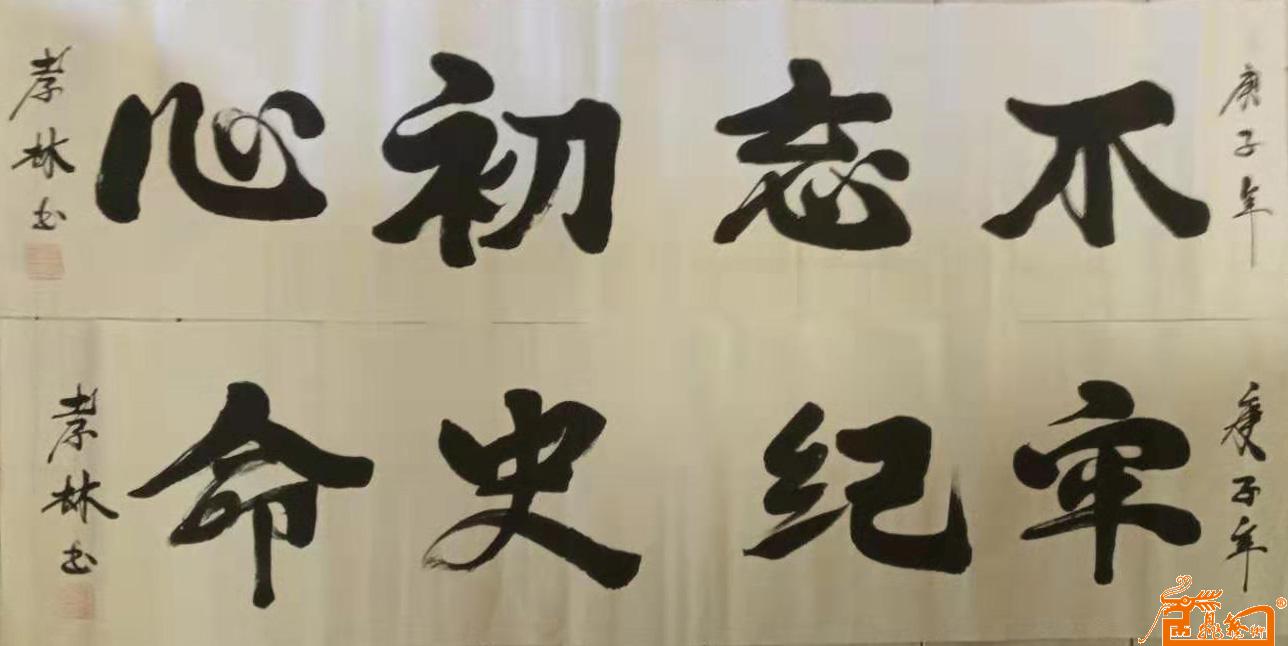 庚子年
不忘初心
孝林书
庚子年
牢纪史命
孝林书